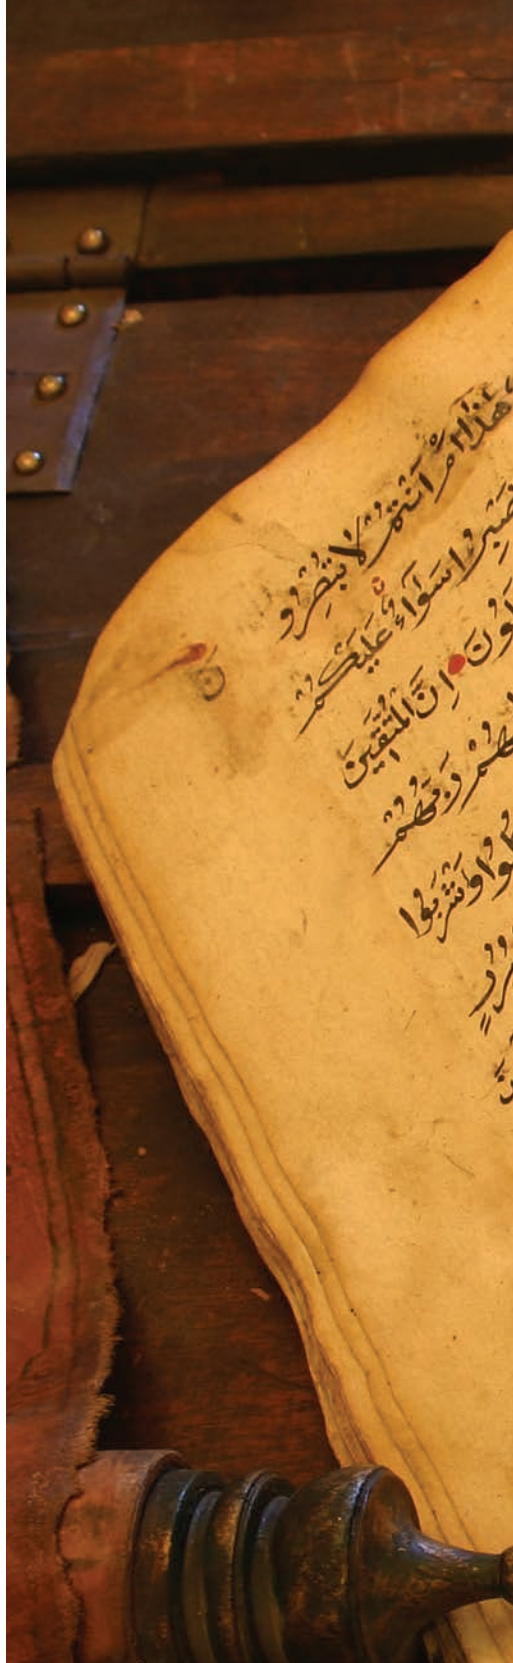 هَذَا اَمْ اَنْتُمْ لَا تُبْصِرُو
نَ
صْبِرُوا سَوَآءٌ عَلَيْكُمْ
لُونَ اِنَّ الْمُتَّقِينَ
هُمْ رَبُّهُمْ
لُوا وَشْرَبُوا
رُرٍ